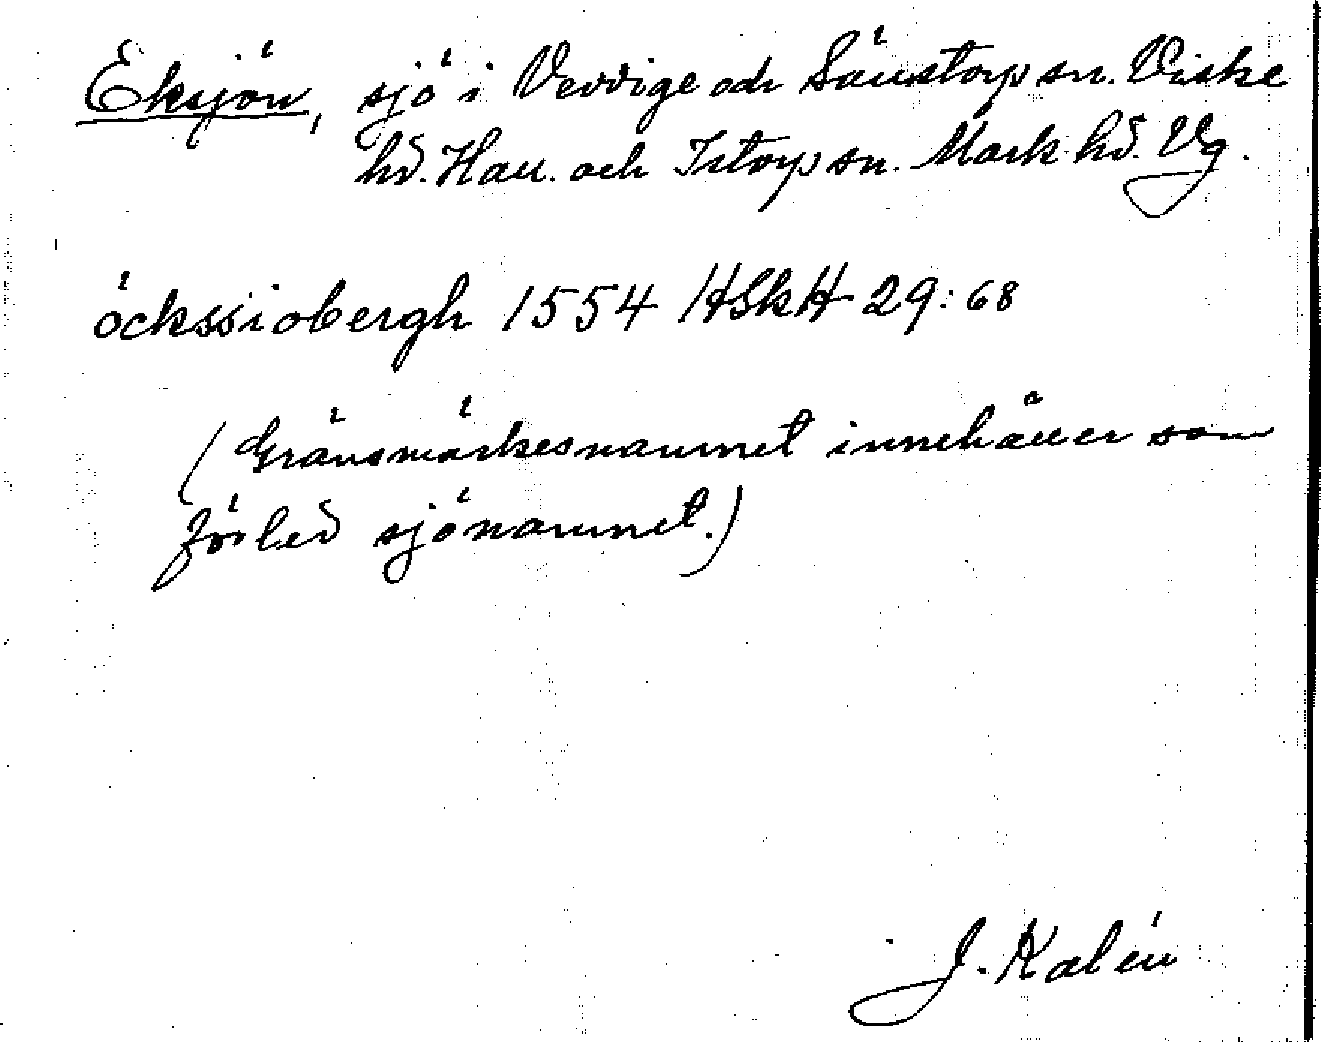 Eksjön, sjö i Veddige och Sällstorp sn. Viske
hd. Hall. och Istorp sn. Mark hd. Vg.
öckssiobergh 1554 HSkH 29:68
(Gränsmärkesnamnet innehåller som
förled sjönamnet.)
J. Kalén